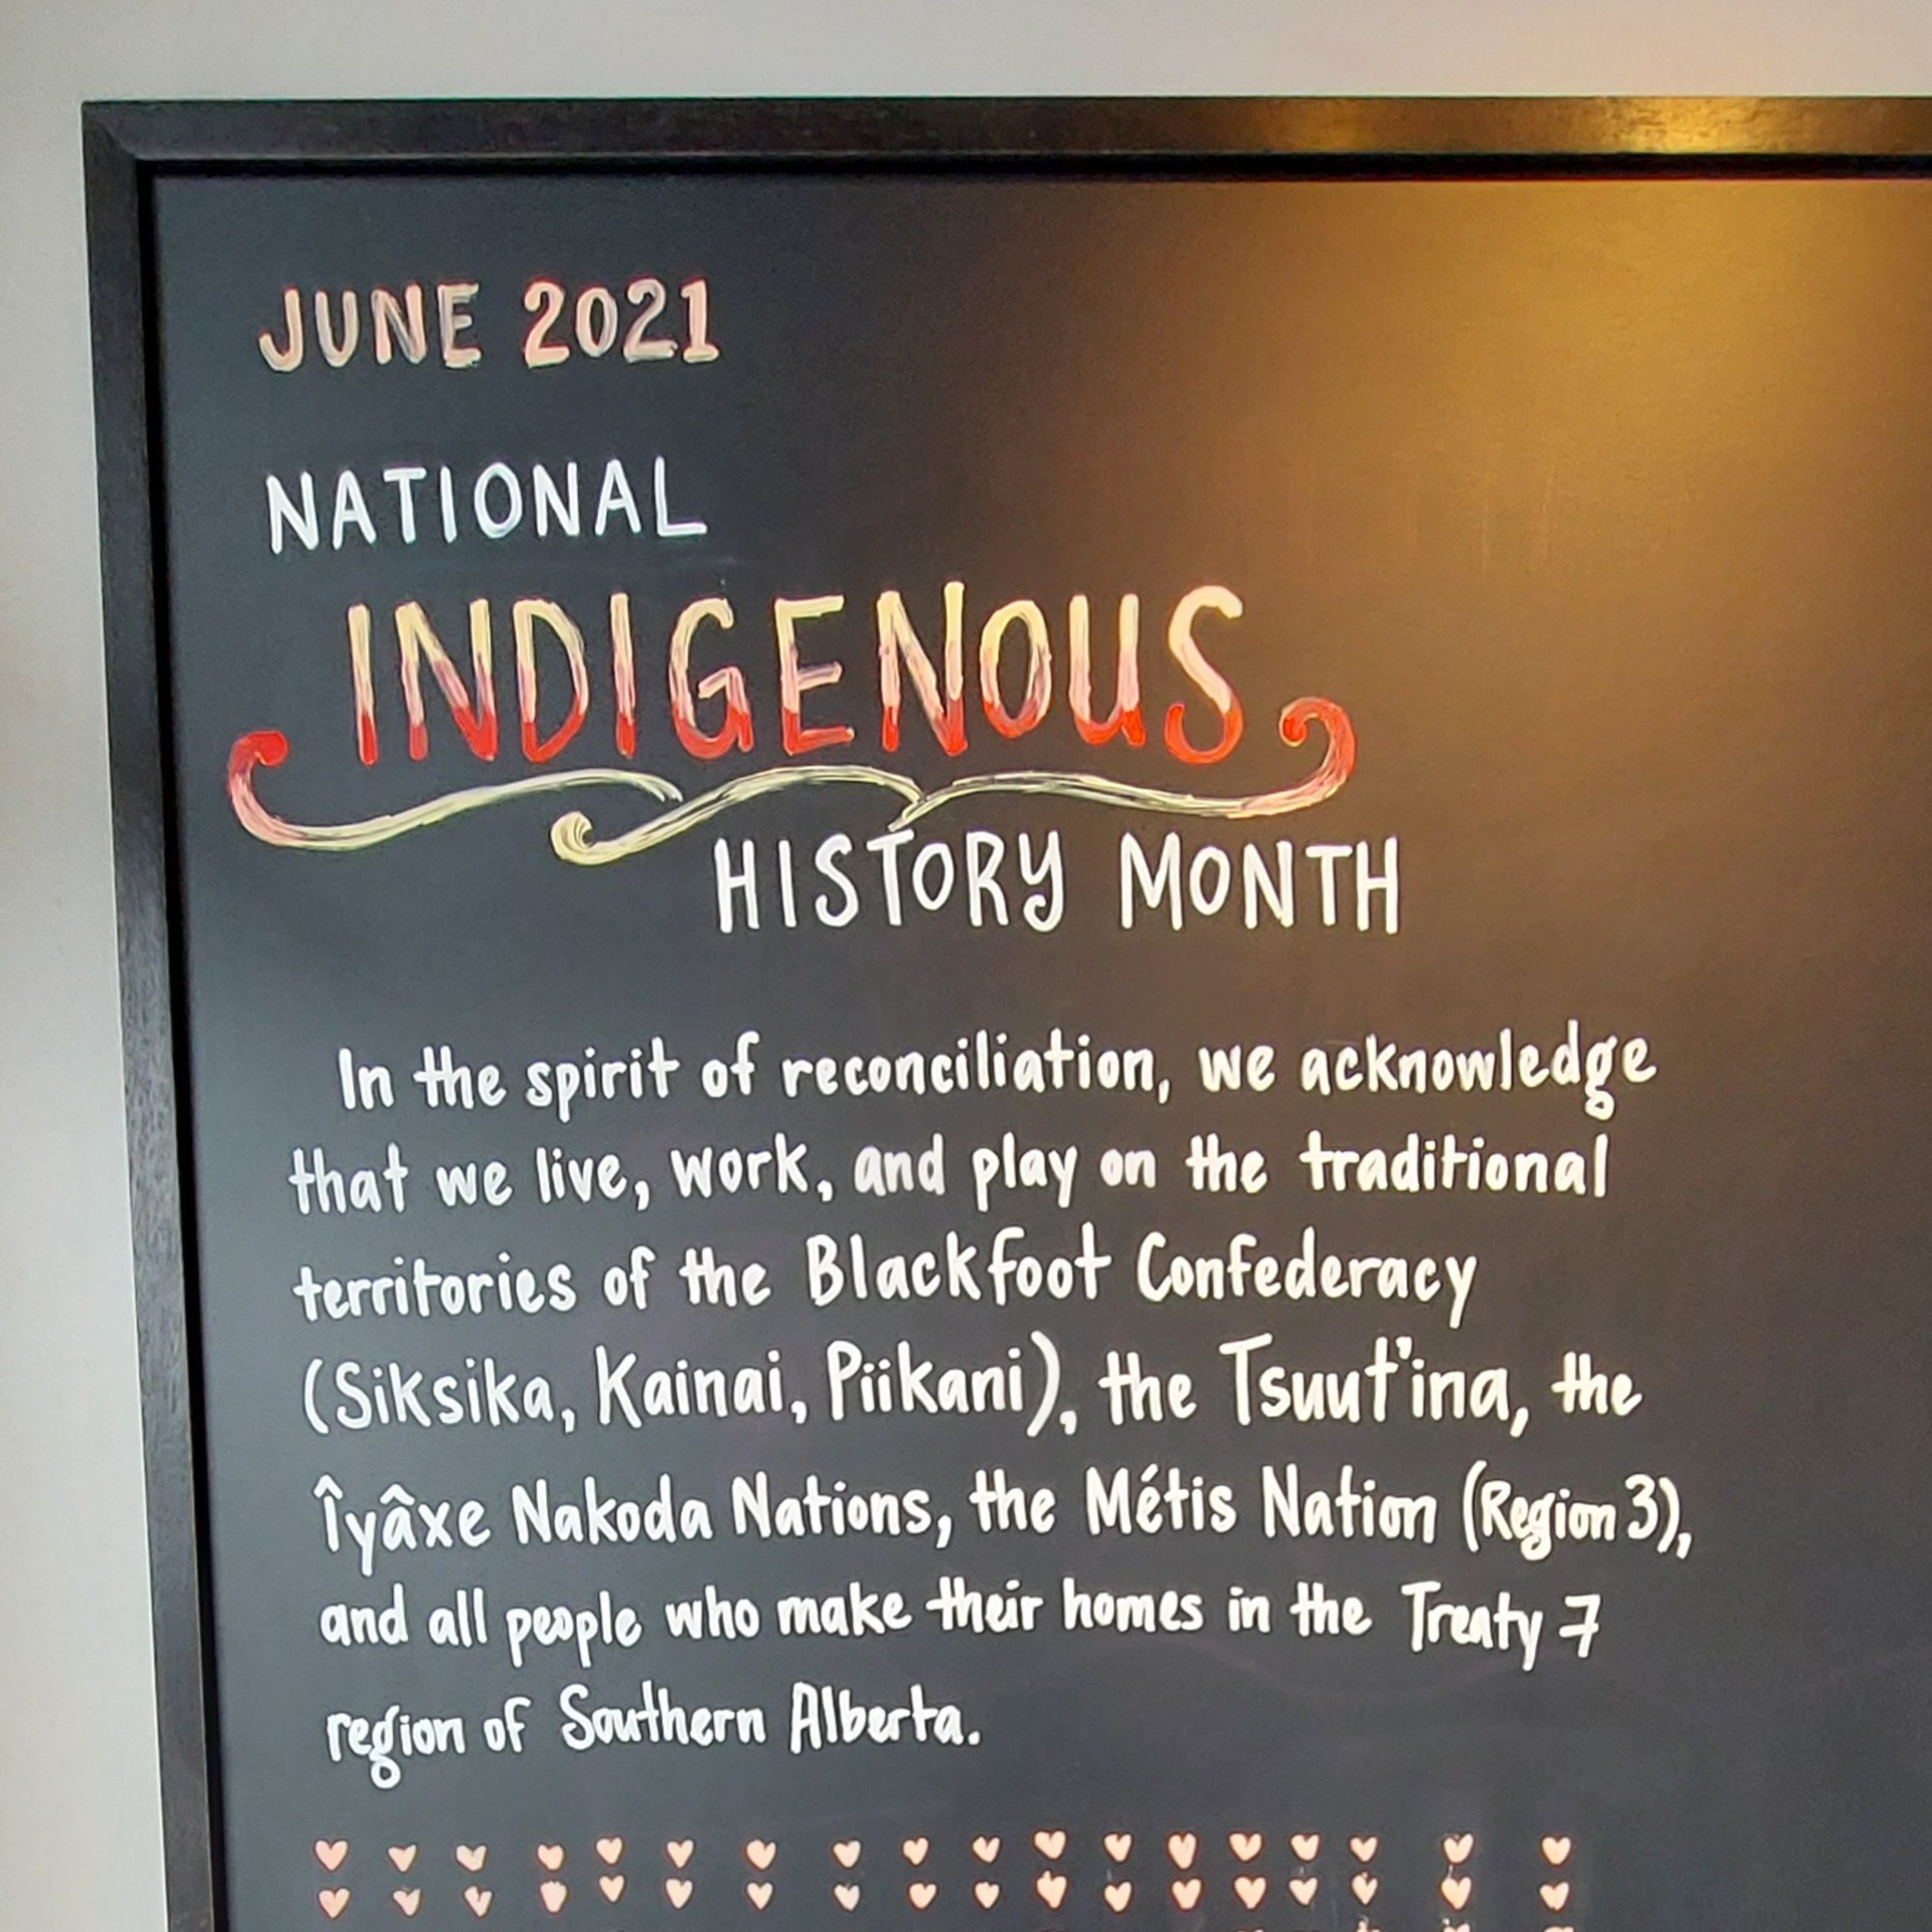 JUNE 2021
NATIONAL
INDIGENOUS
HISTORY MONTH
In the spirit of reconciliation, we acknowledge
that we live, work, and play on the traditional
territories of the Blackfoot Confederacy
(Siksika, Kainai, Piikani), the Tsuut'ina, the
Îyâxe Nakoda Nations, the Métis Nation (Region 3),
and all people who make their homes in the Treaty 7
region of Southern Alberta.